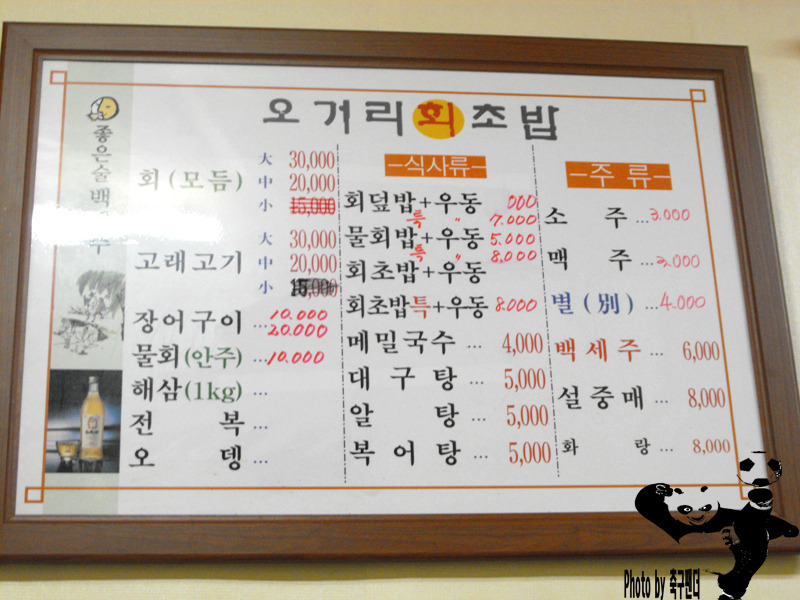 오거리회초밥
좋은술 백
회(모듬) 大 30,000
中 20,000
小 15,000
고래고기 大 30,000
中 20,000
小 15,000
장어구이 ... 10.000
20.000
물회(안주) ... 10.000
해삼(1kg) ...
전 복 ...
오 뎅 ...
-식사류-
회덮밥+우동 000
특 〃 7.000
물회밥+우동 5.000
특 〃 8,000
회초밥+우동
회초밥특+우동 8.000
메밀국수 ... 4,000
대 구 탕 ... 5,000
알 탕 ... 5,000
복 어 탕 ... 5,000
-주 류-
소 주 ... 3.000
맥 주 ... 3.000
별(別) ... 4.000
백세주 ... 6,000
설중매 ... 8,000
화 랑 ... 8,000
Photo by 축구팬더